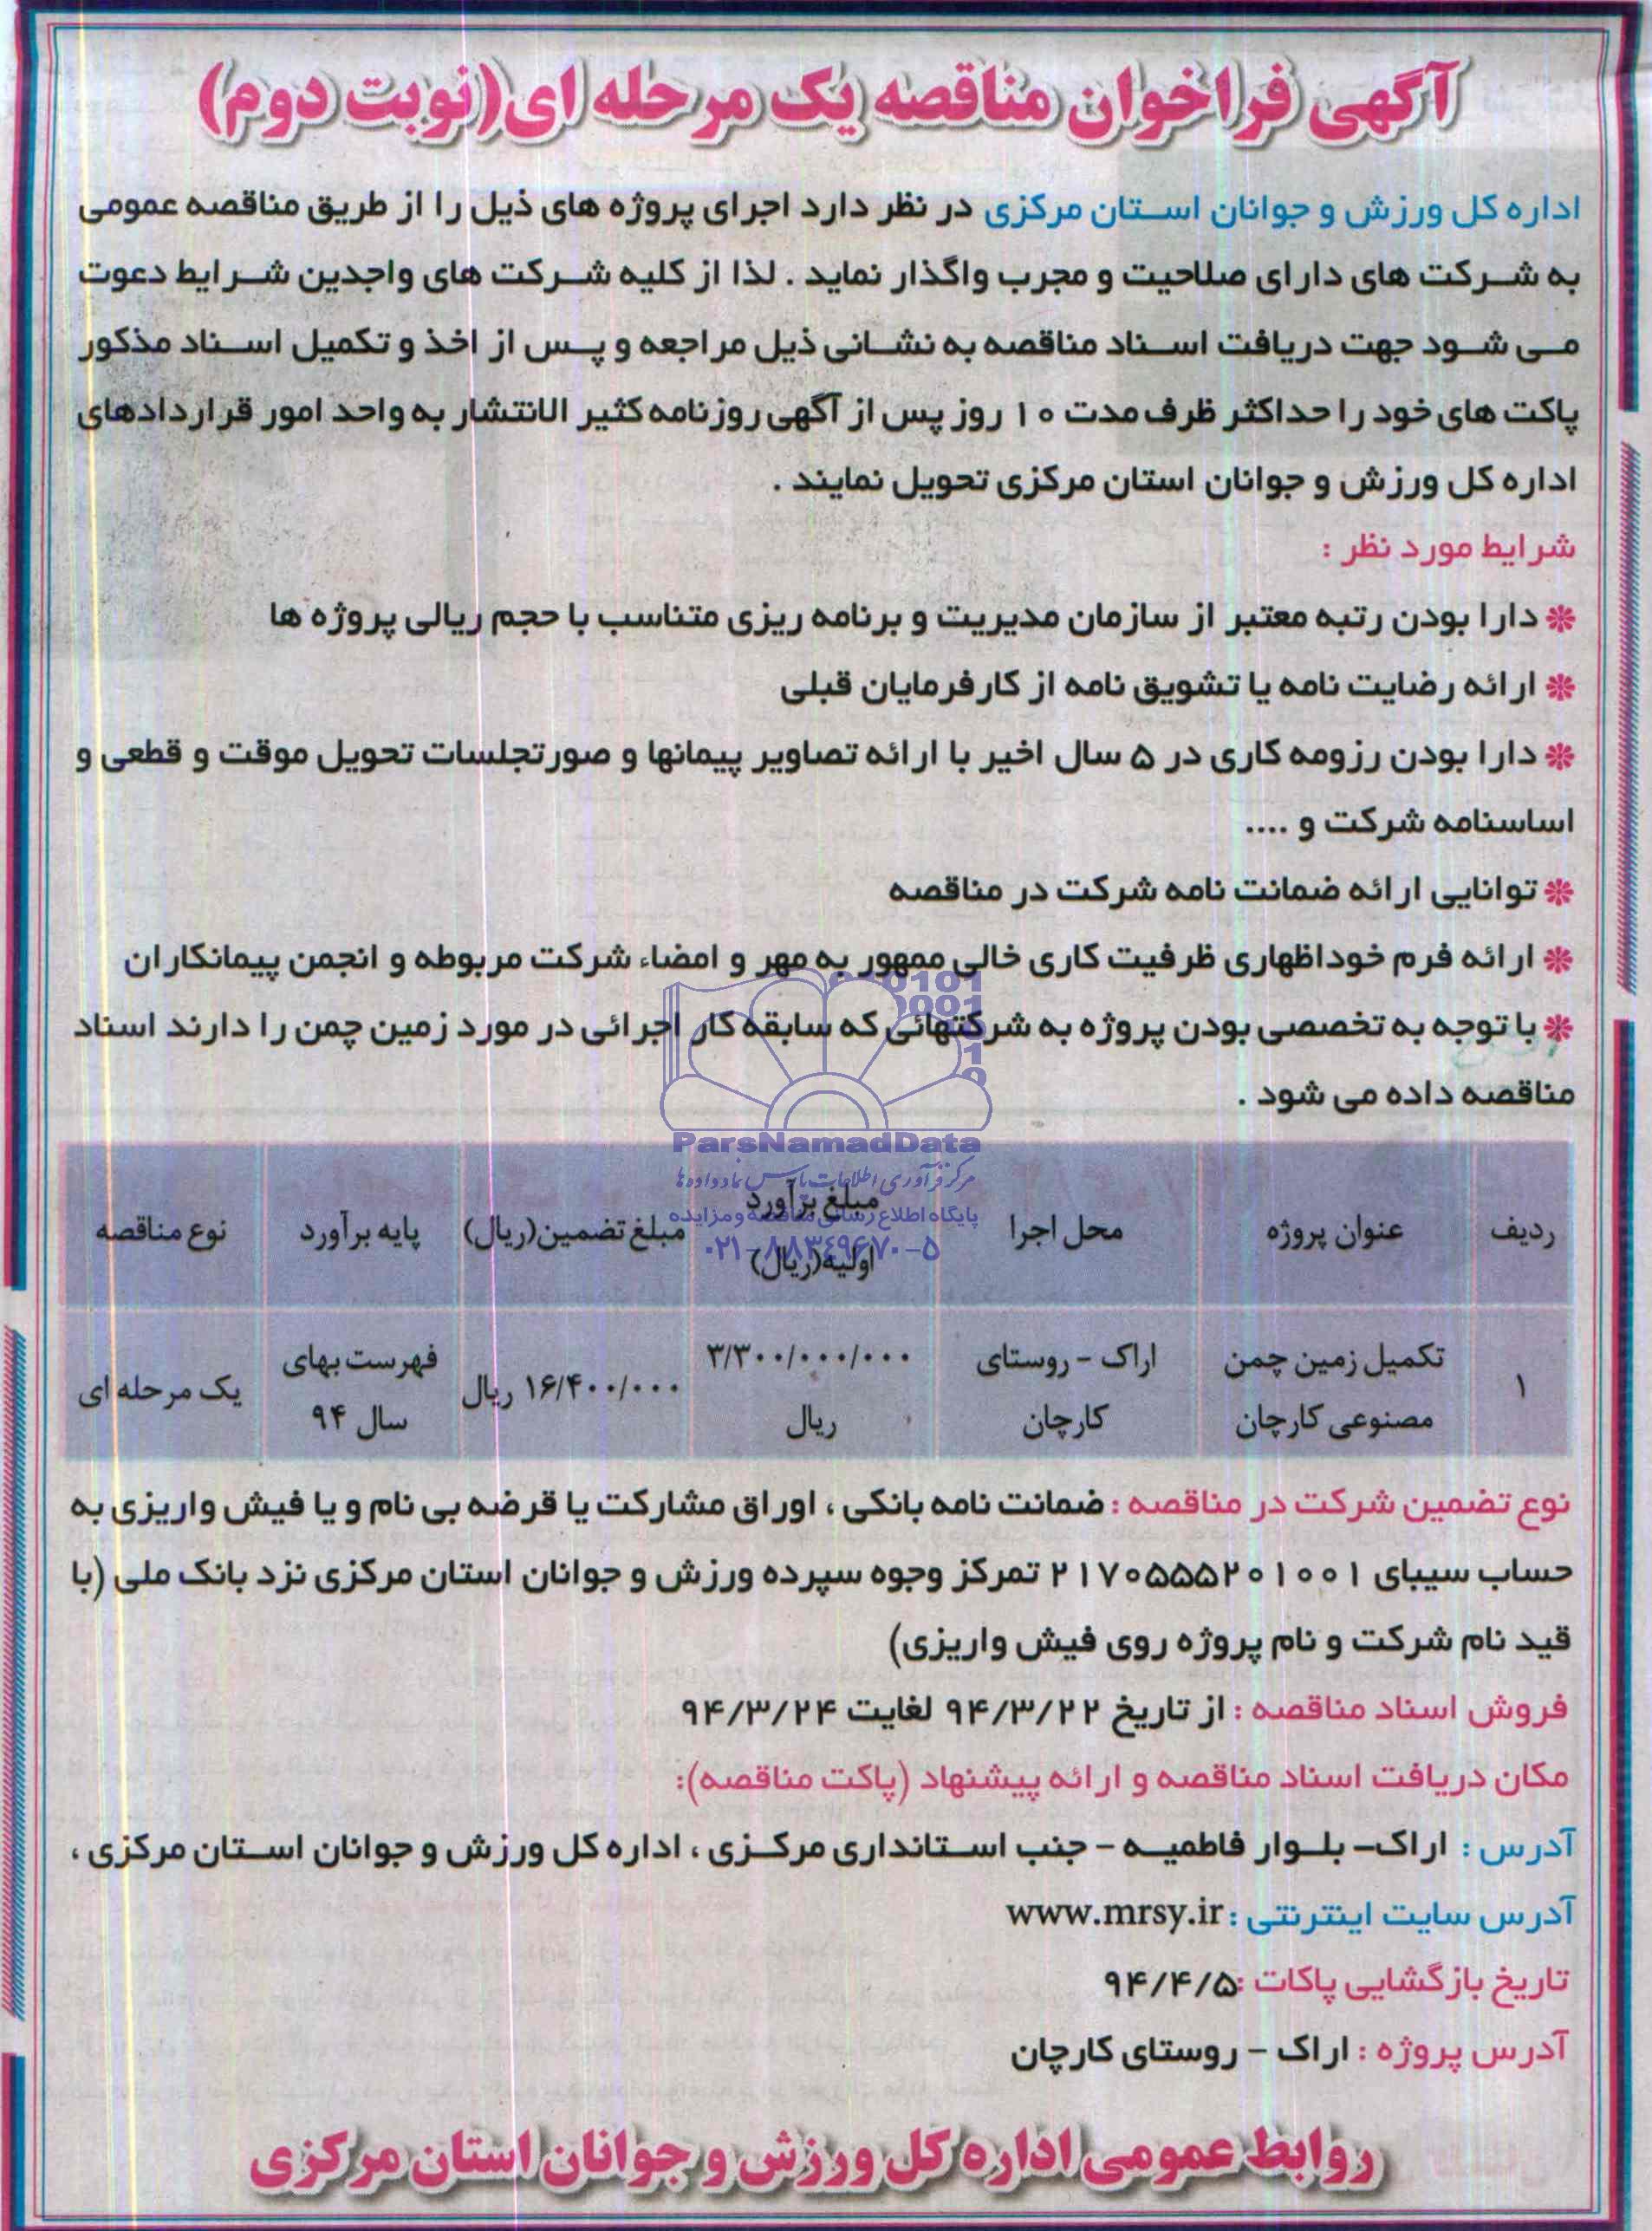 آگهی فراخوان مناقصه یک مرحله ای(نوبت دوم)
اداره کل ورزش و جوانان استان مرکزی در نظر دارد اجرای پروژه های ذیل را از طریق مناقصه عمومی
به شرکت های دارای صلاحیت و مجرب واگذار نماید . لذا از کلیه شرکت های واجدین شرایط دعوت
می شود جهت دریافت اسناد مناقصه به نشانی ذیل مراجعه و پس از اخذ و تکمیل اسناد مذکور
پاکت های خود را حداکثر ظرف مدت ۱۰ روز پس از آگهی روزنامه کثیر الانتشار به واحد امور قراردادهای
اداره کل ورزش و جوانان استان مرکزی تحویل نمایند .
شرایط مورد نظر :
* دارا بودن رتبه معتبر از سازمان مدیریت و برنامه ریزی متناسب با حجم ریالی پروژه ها
* ارائه رضایت نامه یا تشویق نامه از کارفرمایان قبلی
* دارا بودن رزومه کاری در ۵ سال اخیر با ارائه تصاویر پیمانها و صورتجلسات تحویل موقت و قطعی و
اساسنامه شرکت و ....
* توانایی ارائه ضمانت نامه شرکت در مناقصه
* ارائه فرم خوداظهاری ظرفیت کاری خالی ممهور به مهر و امضاء شرکت مربوطه و انجمن پیمانکاران
* با توجه به تخصصی بودن پروژه به شرکتهائی که سابقه کار اجرائی در مورد زمین چمن را دارند اسناد
مناقصه داده می شود .
ParsNamadData
مرکز فرآوری اطلاعات پارس نماد داده ها
پایگاه اطلاع رسانی مناقصه و مزایده
۰۲۱-۸۸۳۴۹۶۷۰-۵
ردیف عنوان پروژه محل اجرا مبلغ برآورد اولیه(ریال) مبلغ تضمین(ریال) پایه برآورد نوع مناقصه
۱ تکمیل زمین چمن مصنوعی کارچان اراک - روستای کارچان ۳/۳۰۰/۰۰۰/۰۰۰ ریال ۱۶/۴۰۰/۰۰۰ ریال فهرست بهای سال ۹۴ یک مرحله ای
نوع تضمین شرکت در مناقصه : ضمانت نامه بانکی ، اوراق مشارکت یا قرضه بی نام و یا فیش واریزی به
حساب سیبای ۲۱۷۰۵۵۵۲۰۱۰۰۱ تمرکز وجوه سپرده ورزش و جوانان استان مرکزی نزد بانک ملی (با
قید نام شرکت و نام پروژه روی فیش واریزی)
فروش اسناد مناقصه : از تاریخ ۹۴/۳/۲۲ لغایت ۹۴/۳/۲۴
مکان دریافت اسناد مناقصه و ارائه پیشنهاد (پاکت مناقصه):
آدرس : اراک- بلوار فاطمیه - جنب استانداری مرکزی ، اداره کل ورزش و جوانان استان مرکزی ،
آدرس سایت اینترنتی : www.mrsy.ir
تاریخ بازگشایی پاکات :۹۴/۴/۵
آدرس پروژه : اراک - روستای کارچان
روابط عمومی اداره کل ورزش و جوانان استان مرکزی